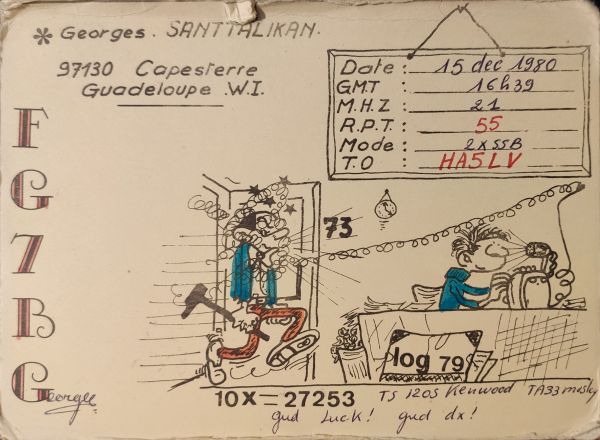 * Georges. SANTTALIKAN.
97130 Capesterre
Guadeloupe W.I.
Date: 15 dec 1980
GMT: 16h39
M.H.Z: 21
R.P.T: 55
Mode: 2xSSB
T.O: HA5LV
FG7BG
73
log 79
10X=27253
TS 120S Kenwood TA33
Georges
gud Luck! gud dx!